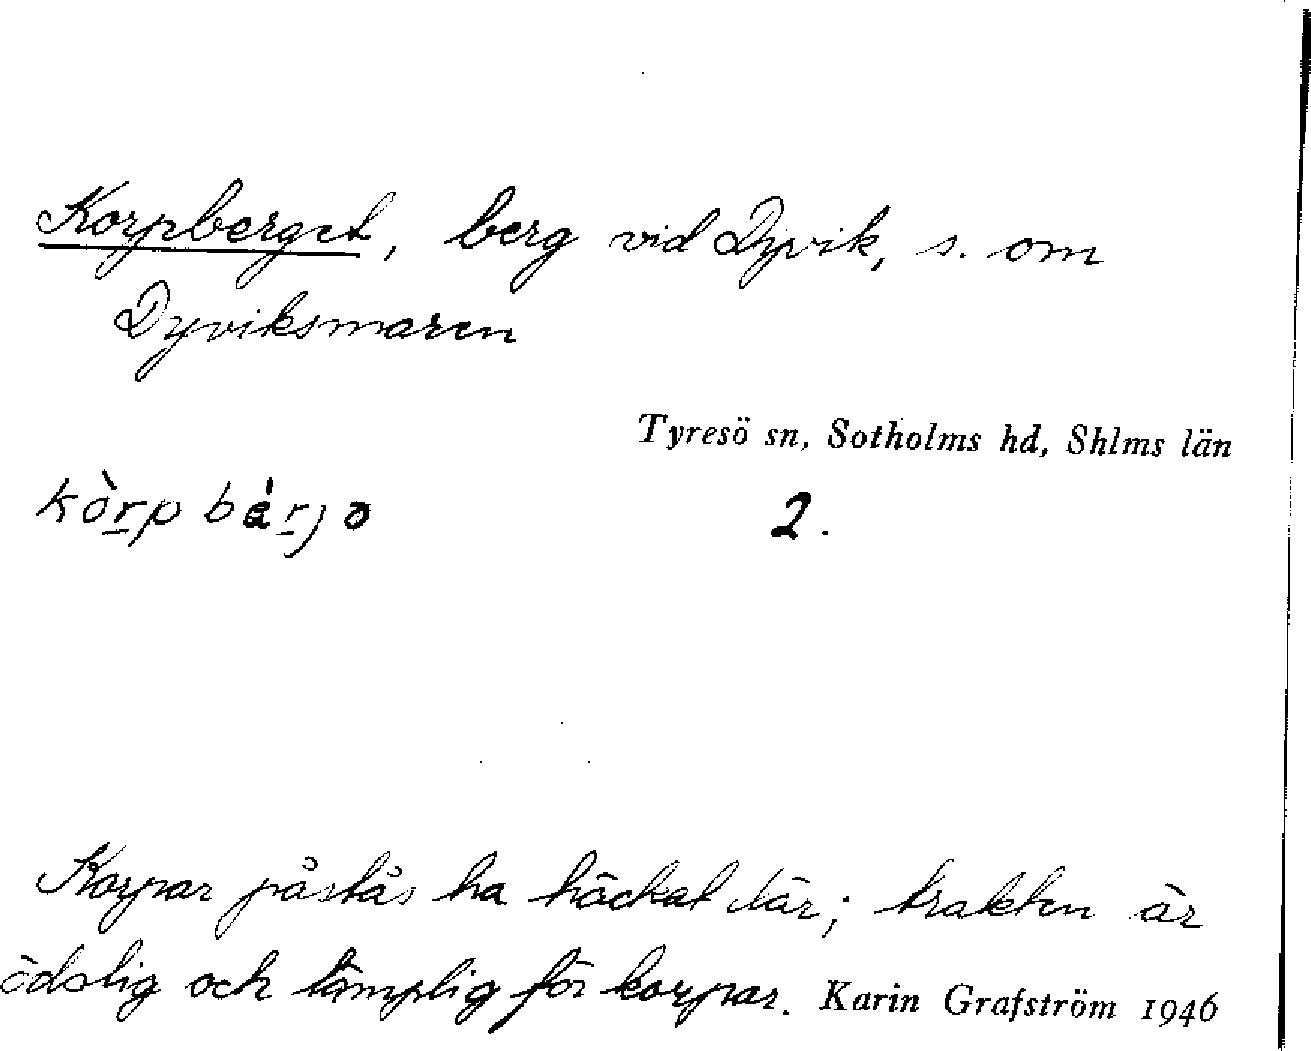 Korpberget, berg vid Dyvik, s. om
Dyviksmaren
Tyresö sn, Sotholms hd, Shlms län
2.
Korpar påstås ha häckat där; trakten är
ödslig och lämplig för korpar. Karin Grafström 1946